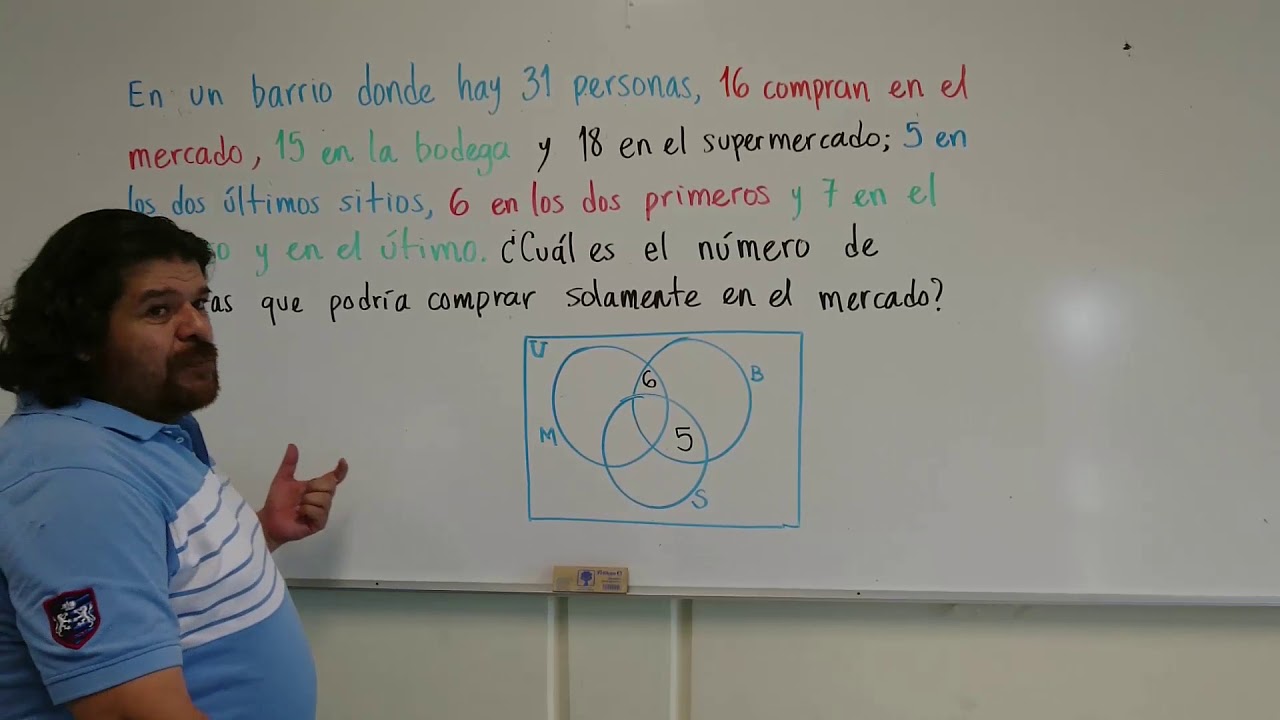 En un barrio donde hay 31 personas, 16 compran en el
mercado, 15 en la bodega y 18 en el supermercado; 5 en
los dos últimos sitios, 6 en los dos primeros y 7 en el
y en el útimo. ¿Cuál es el número de
que podría comprar solamente en el mercado?
U
B
6
M
5
S